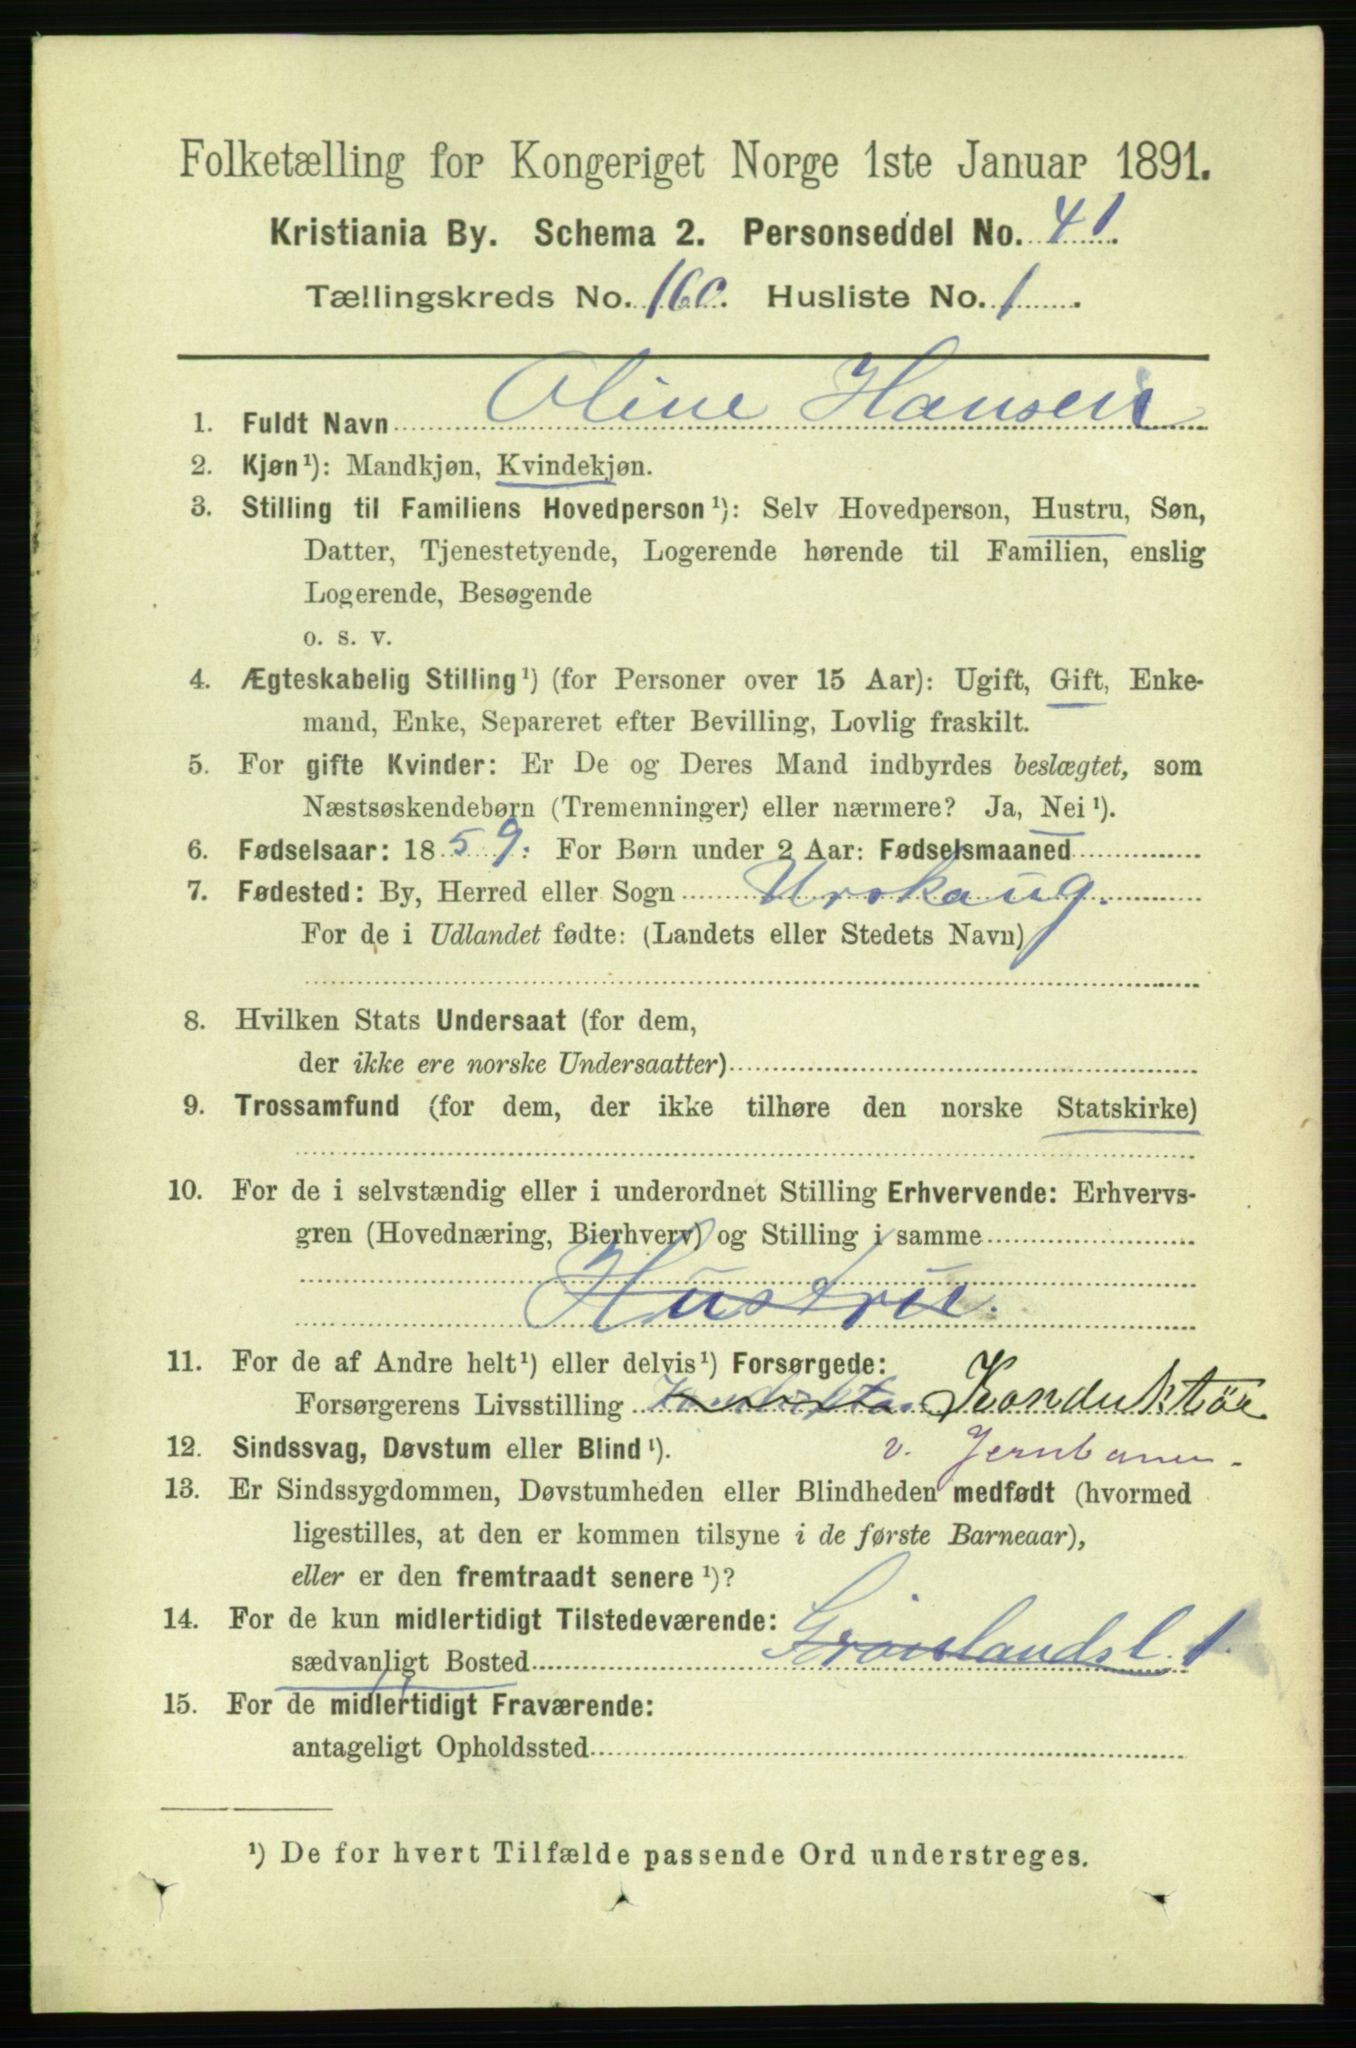 Folketælling for Kongeriget Norge 1ste Januar 1891.
Kristiania By. Schema 2. Personseddel No. 41.
Tællingskreds No. 160. Husliste No. 1.
1. Fuldt Navn Oline Hansen
2. Kjøn¹): Mandkjøn, Kvindekjøn.
3. Stilling til Familiens Hovedperson¹): Selv Hovedperson, Hustru, Søn,
Datter, Tjenestetyende, Logerende hørende til Familien, enslig
Logerende, Besøgende
o. s. v.
4. Ægteskabelig Stilling¹) (for Personer over 15 Aar): Ugift, Gift, Enke-
mand, Enke, Separeret efter Bevilling, Lovlig fraskilt.
5. For gifte Kvinder: Er De og Deres Mand indbyrdes beslægtet, som
Næstsøskendebørn (Tremenninger) eller nærmere? Ja, Nei¹).
6. Fødselsaar: 1859. For Børn under 2 Aar: Fødselsmaaned
7. Fødested: By, Herred eller Sogn Urskaug.
For de i Udlandet fødte: (Landets eller Stedets Navn)
8. Hvilken Stats Undersaat (for dem,
der ikke ere norske Undersaatter)
9. Trossamfund (for dem, der ikke tilhøre den norske Statskirke)
10. For de i selvstændig eller i underordnet Stilling Erhvervende: Erhvervs-
gren (Hovednæring, Bierhverv) og Stilling i samme
Hustru.
11. For de af Andre helt¹) eller delvis¹) Forsørgede:
Forsørgerens Livsstilling Konduktør
12. Sindssvag, Døvstum eller Blind¹). v. Jernbanen.
13. Er Sindssygdommen, Døvstumheden eller Blindheden medfødt (hvormed
ligestilles, at den er kommen tilsyne i de første Barneaar),
eller er den fremtraadt senere¹)?
14. For de kun midlertidigt Tilstedeværende:
sædvanligt Bosted Grønlandsl. 1.
15. For de midlertidigt Fraværende:
antageligt Opholdssted
¹) De for hvert Tilfælde passende Ord understreges.